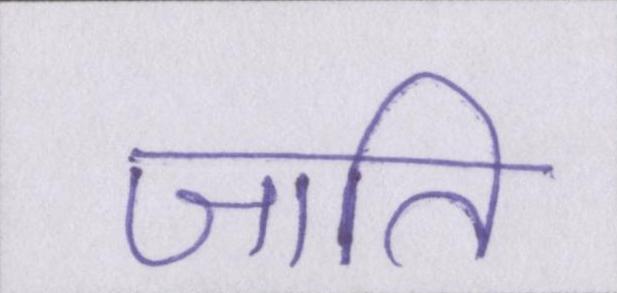 जाति